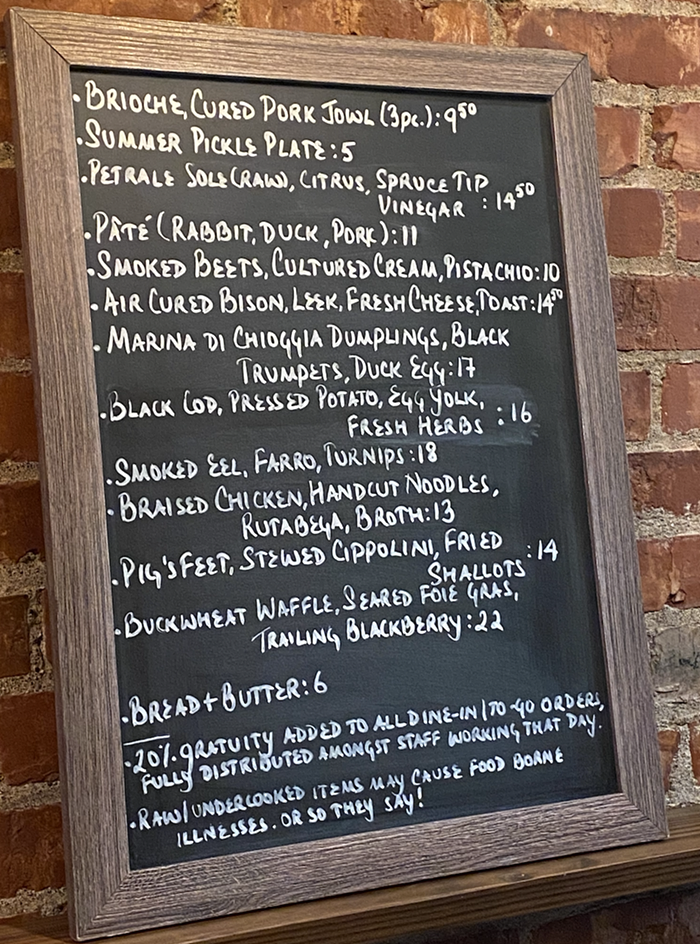 • BRIOCHE, CURED PORK JOWL (3pc.): 9⁵⁰
• SUMMER PICKLE PLATE: 5
• PETRALE SOLE (RAW), CITRUS, SPRUCE TIP
VINEGAR : 14⁵⁰
• PÂTÉ (RABBIT, DUCK, PORK): 11
• SMOKED BEETS, CULTURED CREAM, PISTACHIO: 10
• AIR CURED BISON, LEEK, FRESH CHEESE, TOAST: 14⁵⁰
• MARINA DI CHIOGGIA DUMPLINGS, BLACK
TRUMPETS, DUCK EGG: 17
• BLACK COD, PRESSED POTATO, EGG YOLK,
FRESH HERBS : 16
• SMOKED EEL, FARRO, TURNIPS: 18
• BRAISED CHICKEN, HANDCUT NOODLES,
RUTABEGA, BROTH: 13
• PIG'S FEET, STEWED CIPPOLINI, FRIED
SHALLOTS : 14
• BUCKWHEAT WAFFLE, SEARED FOIE GRAS,
TRAILING BLACKBERRY: 22
• BREAD + BUTTER: 6
• 20% GRATUITY ADDED TO ALL DINE-IN / TO-GO ORDERS,
FULLY DISTRIBUTED AMONGST STAFF WORKING THAT DAY.
• RAW/UNDERCOOKED ITEMS MAY CAUSE FOOD BORNE
ILLNESSES. OR SO THEY SAY!